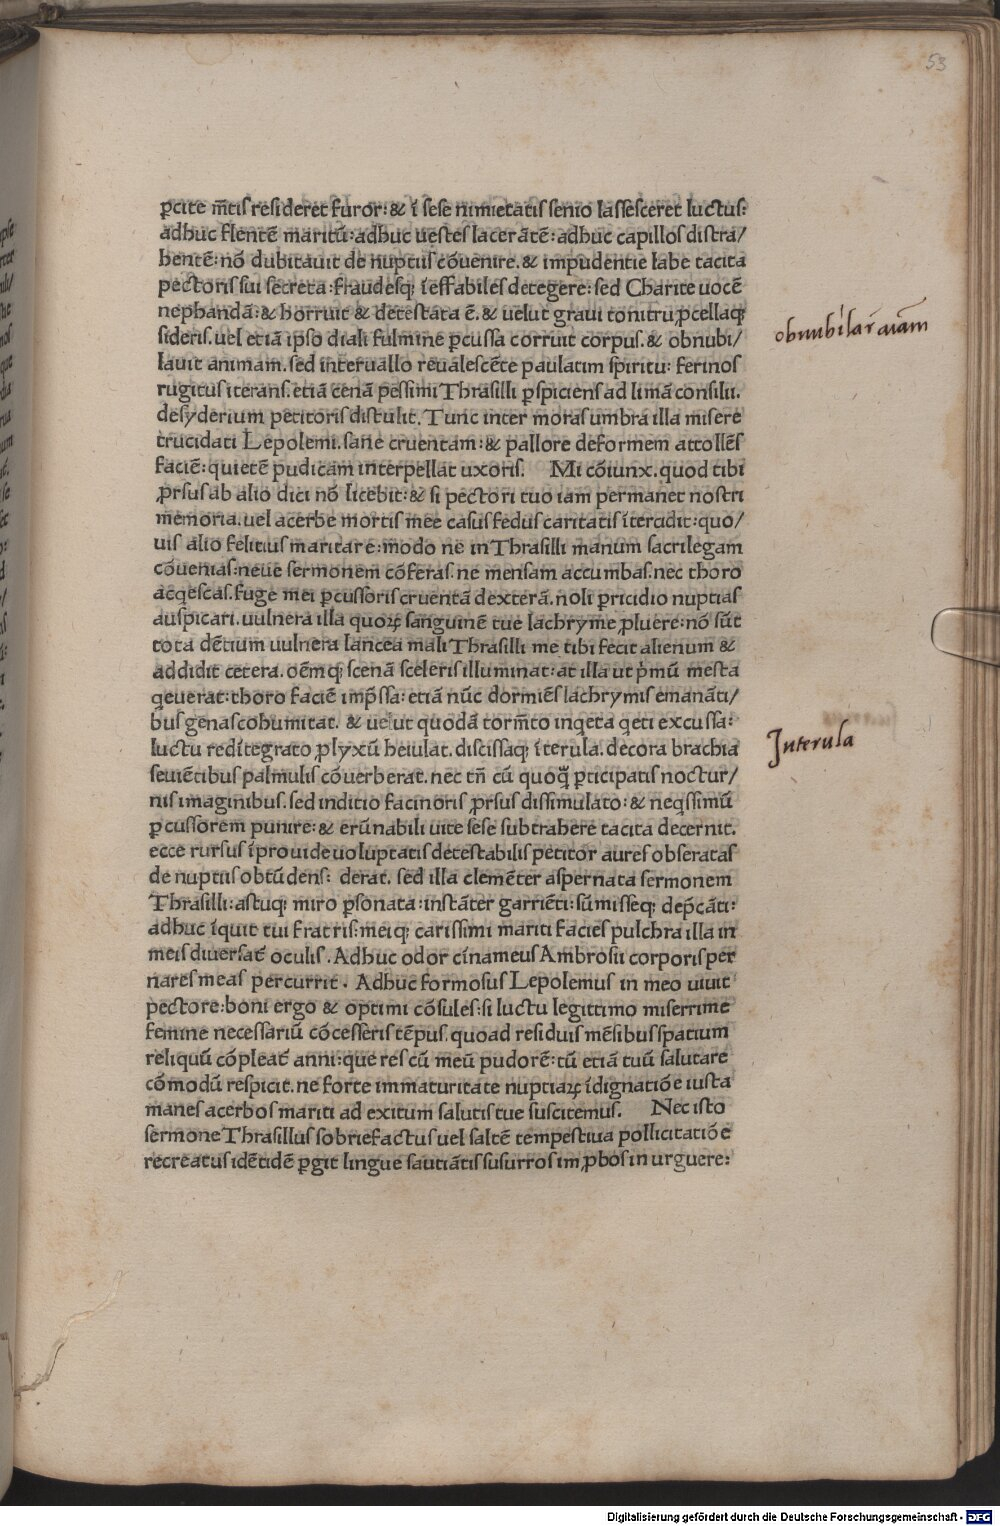 53
ꝑcite m̄tis resideret furor: & ī sese nimietatis senio lassesceret luctus:
adhuc flentē maritū: adhuc uestes lacerātē: adhuc capillos distra/
hentē: nō dubitauit de nuptiis cōuenire. & impudentie labe tacita
pectoris sui secreta: fraudesq; īeffabiles detegere: sed Charite uocē
nephandā: & horruit & detestata ē. & uelut graui tonitru ꝓcellaq;
sideris. uel etiā ipso diali fulmine ꝑcussa corruit corpus. & obnubi/
lauit animam. sed interuallo reualescēte paulatim spiritu: ferinos
rugitus iterans. etiā cenā pessimi Thrasilli ꝑspiciens ad limā consilii.
desyderium petitoris distulit. Tunc inter moras umbra illa misere
trucidati Lepolemi. sane cruentam: & pallore deformem attollēs
faciē: quietē pudicam interpellat uxoris. Mi cōiunx. quod tibi
ꝓrsus ab alio dici nō licebit: & si pectori tuo iam permanet nostri
memoria. uel acerbe mortis mee casus fedus caritatis ītercidit: quo/
uis alio felitius maritare: modo ne in Thrasilli manum sacrilegam
cōuenias: neue sermonem cōferas. ne mensam accumbas. nec thoro
acq̇escas. fuge mei ꝑcussoris cruentā dexterā. noli ꝑricidio nuptias
auspicari. uulnera illa quoꝝ sanguinē tue lachryme ꝓluere: nō sūt
tota dētium uulnera lancea mali Thrasilli me tibi fecit alienum &
addidit cetera. oēmq; scenā sceleris illuminat: at illa ut p̍mū mesta
q̇euerat: thoro faciē imp̄ssa: etiā nūc dormiēs lachrymis emanāti/
bus genas cohumitat. & uelut quodā torm̄to inq̇eta q̇eti excussa:
luctu redītegrato ꝓlyxū heiulat. discissaq; īterula. decora brachia
seuiētibus palmulis cōuerberat. nec tn̄ cū quoq̄ ꝑticipatis noctur/
nis imaginibus. sed inditio facinoris ꝓrsus dissimulato: & neq̇ssimū
ꝑcussorem punire: & erūnabili uite sese subtrahere tacita decernit.
ecce rursus īprouide uoluptatis detestabilis petitor aures obseratas
de nuptiis obtūdens: derat. sed illa clemēter aspernata sermonem
Thrasilli: astuq; miro ꝑsonata: instāter garriēti: sūmisseq; dep̄cāti:
adhuc īquit tui fratris: meiq; carissimi mariti facies pulchra illa in
meis diuersat᷑ oculis. Adhuc odor cīnameus Ambrosii corporis per
nares meas percurrit. Adhuc formosus Lepolemus in meo uiuit
pectore: boni ergo & optimi cōsules: si luctu legittimo miserrime
femine necessariū cōcesseris tēpus. quoad residuis mēsibus spatium
reliquū cōpleat᷑ anni: que res cū meū pudorē: tū etiā tuū salutare
cōmodū respicit. ne forte immaturitate nuptiaꝝ īdignatiōe iusta
manes acerbos mariti ad exitum salutis tue suscitemus. Nec isto
sermone Thrasillus sobriefactus uel saltē tempestiua pollicitatiōe
recreatus idētidē ꝑgit lingue sautiātis susurros imꝓbos inurguere:
obnubilar̄ aīam
Interula
Digitalisierung gefördert durch die Deutsche Forschungsgemeinschaft - DFG